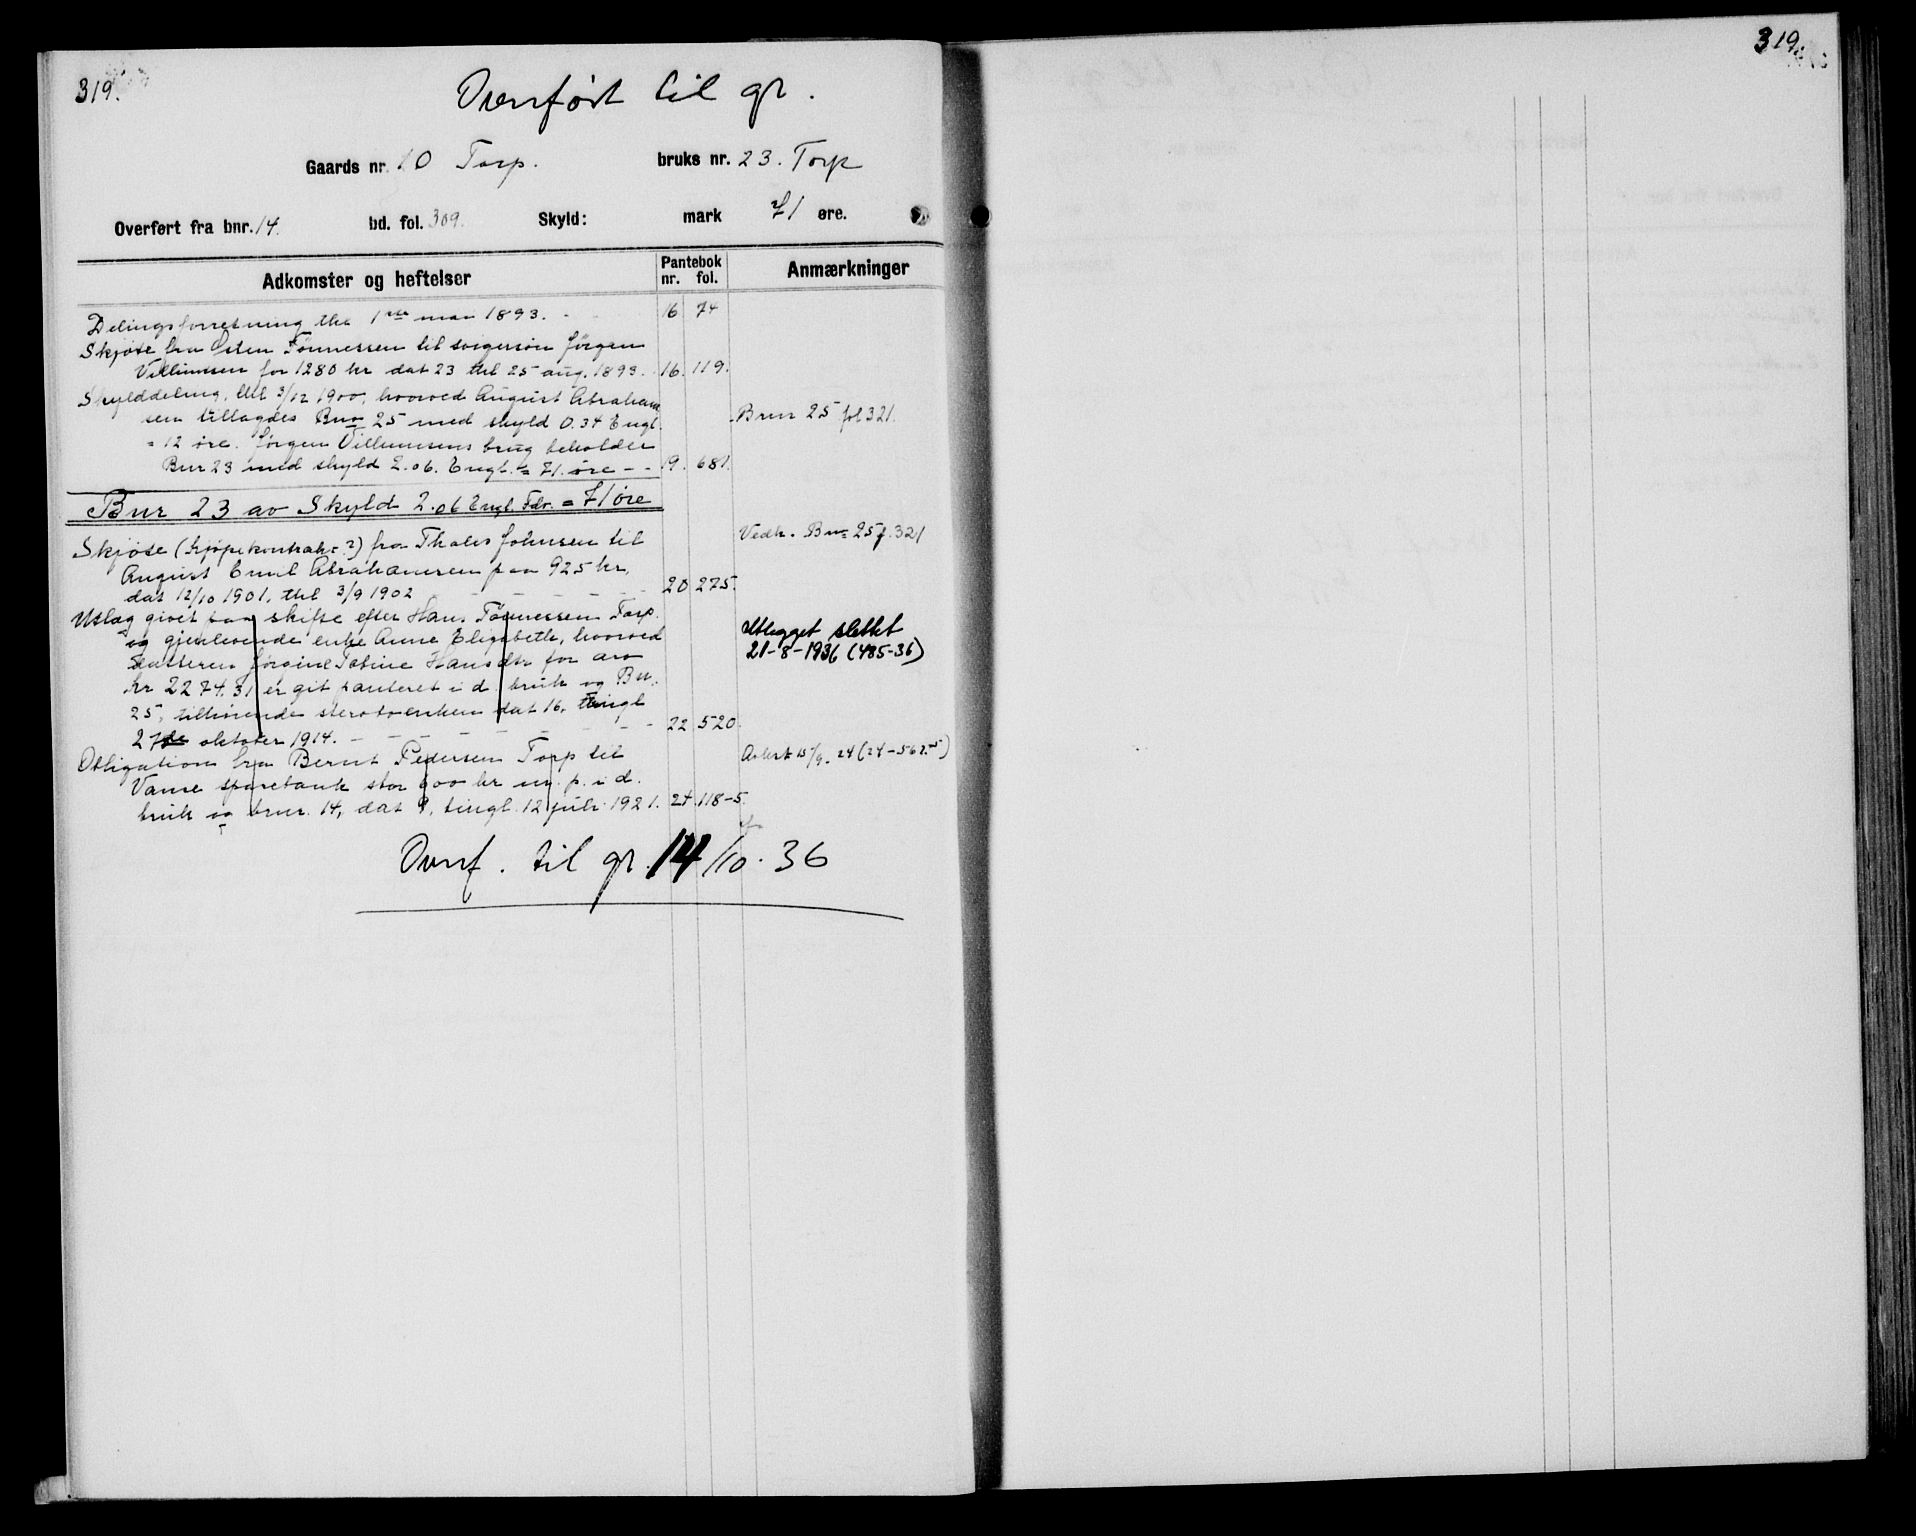 319.
Overført til gr.
Gaards nr. 10 Torp. bruks nr. 23. Torp
Overført fra bnr. 14. bd. fol. 309. Skyld: mark 71 øre.
Adkomster og heftelser Pantebok nr. fol. Anmærkninger
Delingsforretning thl. 1ste mars 1893. - 16 74
Skjøte fra Sten Tönnessen til svigersøn Jörgen
Villumsen for 1280 kr dat 23 thl 25 aug. 1893. 16. 119.
Skylddeling, thl 3/12 1900, hvorved August Abraham
sen tillagdes Bnr 25 med skyld 0.34 Engl. Bnr 25 fol 321.
= 12 øre. Jörgen Villumsens brug beholder
Bnr 23 med skyld 2.06. Engl. = 71. øre - - 19. 681.
Bnr 23 av Skyld 2.06 Engl. Fdr. = 71 øre
Skjöte (kjøpekontrakt?) fra Thales Johnsen til Vedk. Bnr 25 f. 321
August Emil Abrahamsen paa 925 kr,
dat 12/10 1901, thl 3/9 1902 20 275.
Utlæg givet paa skifte efter Hans Tönnessen Torp
og gjenlevende enke Anne Elisabeth, hvorved Utlegget slettet
datteren Jörgine Tobine Hansdtr for arv 21-8-1936 (485-36)
kr 2274.31 er git panteret i d. bruk og Bn.
25, tilhørende stervboenken dat 16, tingl
27de oktober 1914. 22 520.
Obligation fra Bernt Pedersen Torp til Avlest 15/9. 24 (24-562.)
Vanse sparebank stor 900 kr m. p. i d.
bruk og bnr. 14, dat 9, tingl. 12 juli 1921. 24. 118-5.
Overf. til gr. 14/10. 36
319.